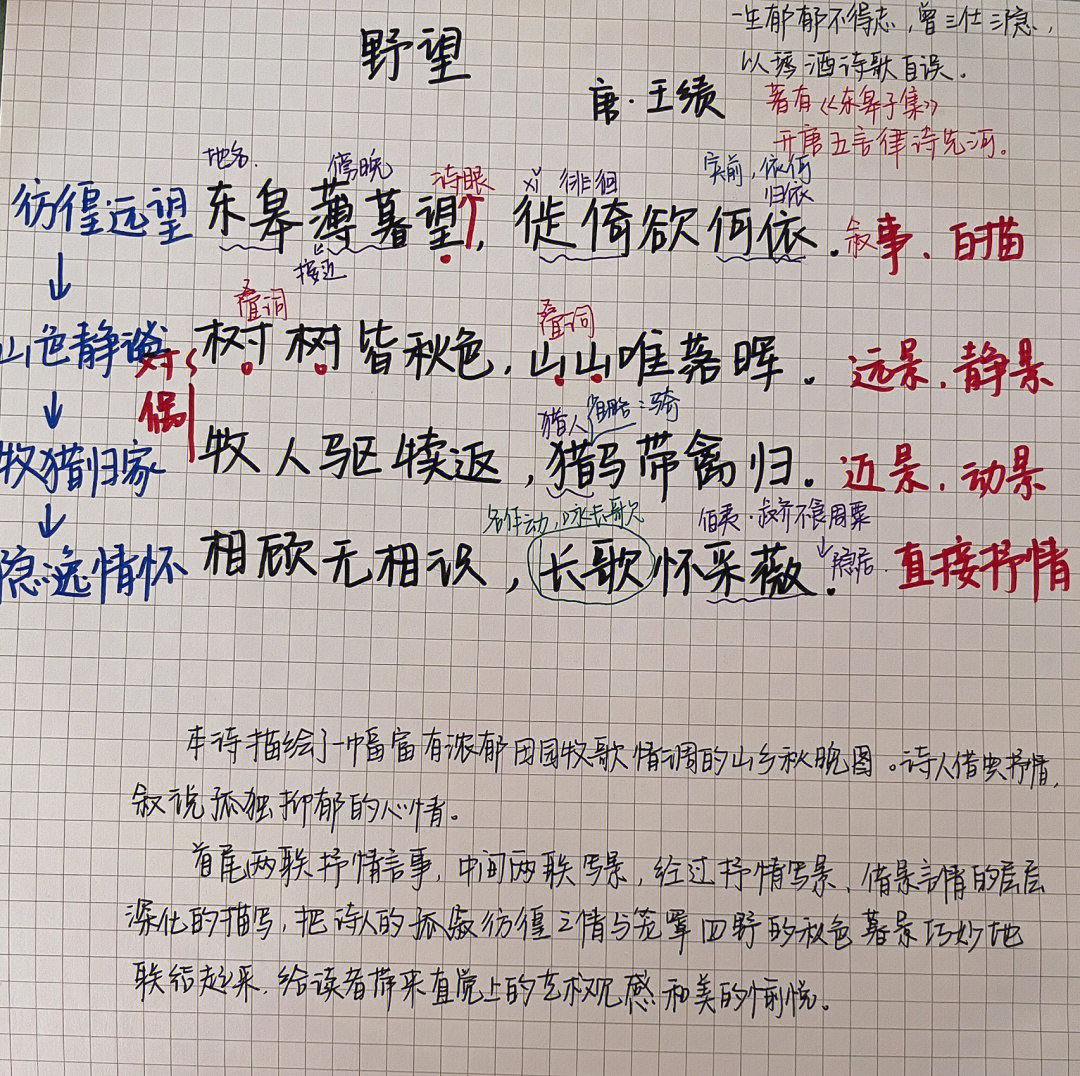 一生郁郁不得志，曾三仕三隐，
野望
以琴酒诗歌自误。
唐·王绩
著有《东皋子集》
开唐五言律诗先河。
地名.
傍晚
诗眼
xǐ 徘徊
宾前，依何
归依
彷徨远望
东皋薄暮望，徙倚欲何依.
叙事、白描
↓
接近
叠词
叠词
山色静谧
对偶
树树皆秋色，山山唯落晖.
远景.静景
↓
猎人 省略：骑
牧猎归家
牧人驱犊返，猎马带禽归.
近景.动景
↓
名作动，咏长歌
伯夷·叔齐不食周粟
↓隐居.
隐逸情怀
相顾无相识，长歌怀采薇.
直接抒情
本诗描绘了一幅富有浓郁田园牧歌情调的山乡秋晚图。诗人借典抒情，
叙说孤独抑郁的心情。
首尾两联抒情言事，中间两联写景，经过抒情写景、借景言情的层层
深化的描写，把诗人的孤寂彷徨之情与笼罩四野的秋色暮景巧妙地
联结起来，给读者带来直觉上的艺术观感和美的愉悦。